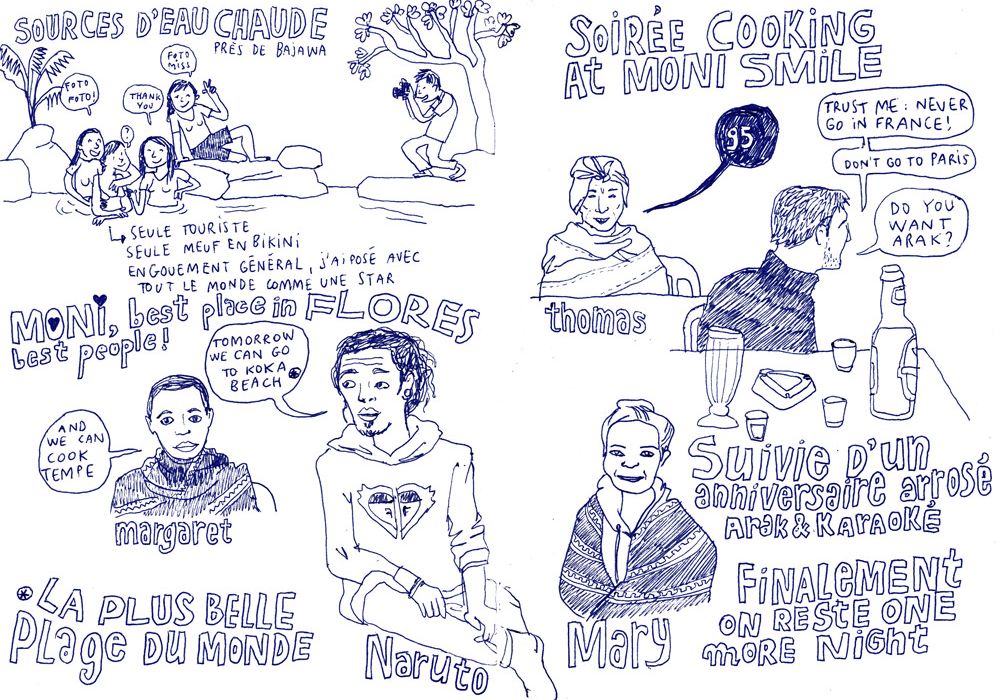 SOURCES D'EAU CHAUDE
PRÈS DE BAJAWA
FOTO
MISS
FOTO
FOTO!
THANK
YOU
?
SEULE TOURISTE
SEULE MEUF EN BIKINI
ENGOUEMENT GÉNÉRAL, J'AI POSÉ AVEC
TOUT LE MONDE COMME UNE STAR
MONI, best place in FLORES
best people!
TOMORROW
WE CAN GO
TO KOKA
BEACH *
AND
WE CAN
COOK
TEMPE
margaret
* LA PLUS BELLE
PLage DU MONDE
Naruto
SOIRÉE COOKING
At MONI SMILE
95
TRUST ME: NEVER
GO IN FRANCE!
DON'T GO TO PARIS
DO YOU
WANT
ARAK?
thomas
Suivie D'un
anniversaire arrosé
ARAK & KARAOKÉ
Mary
FINALEMENT
ON RESTE ONE
MORE NIGHT